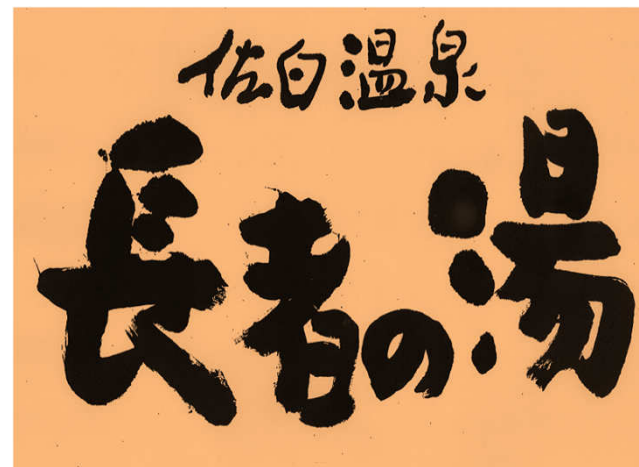 佐白温泉
長者の湯